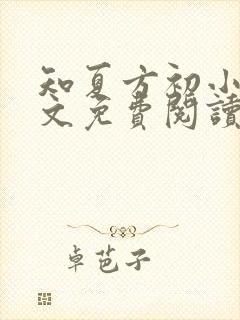 知夏方初小
文免費閱讀
卓芭子